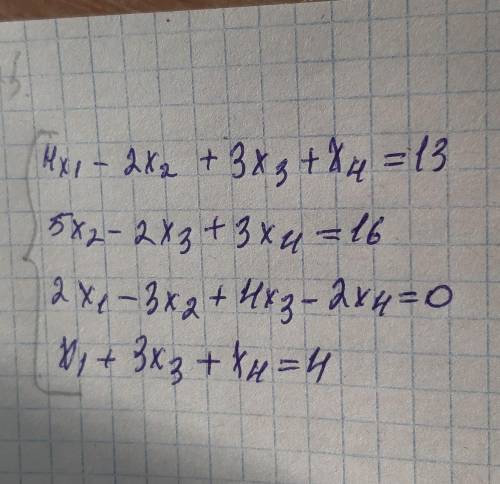 4x₁ - 2x₂ + 3x₃ + x₄ = 13
5x₂ - 2x₃ + 3x₄ = 16
2x₁ - 3x₂ + 4x₃ - 2x₄ = 0
x₁ + 3x₃ + x₄ = 4